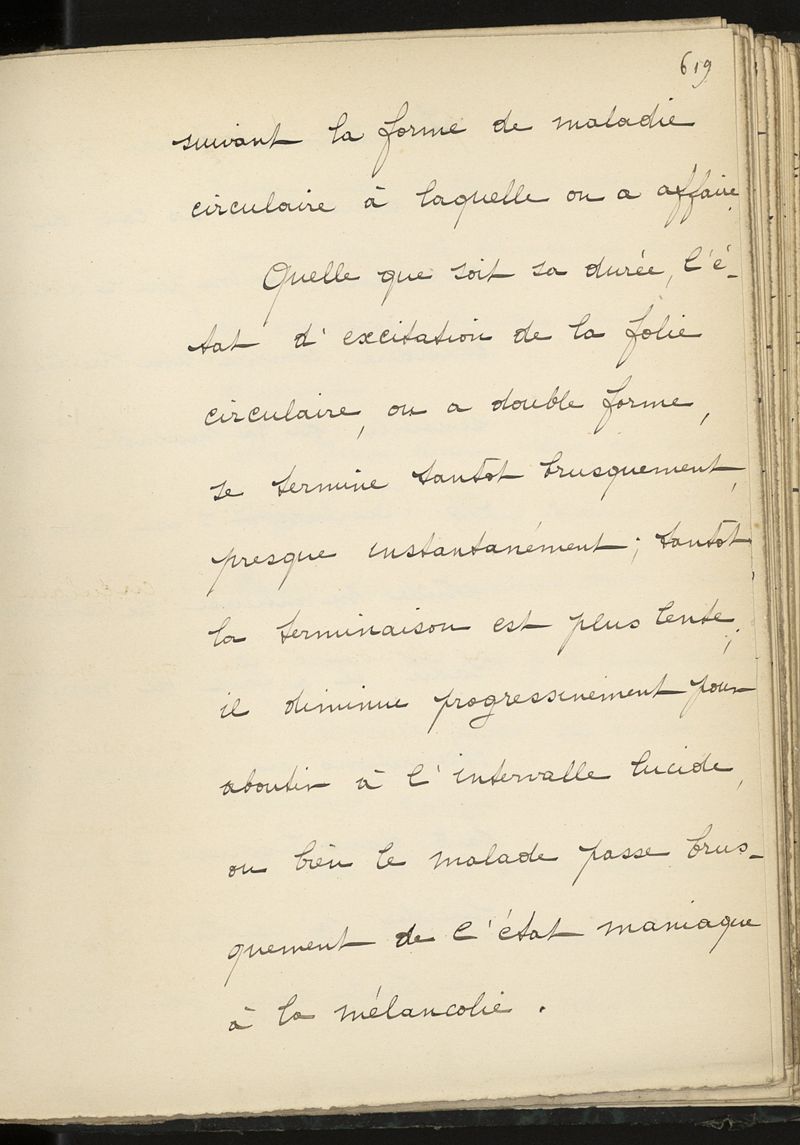 619
suivant la forme de maladie
circulaire à laquelle on a affaire.
Quelle que soit sa durée, l'é-
tat d'excitation de la folie
circulaire, ou a double forme,
se termine tantôt brusquement,
presque instantanément ; tantôt
la terminaison est plus lente ;
il diminue progressivement pour
aboutir à l'intervalle lucide,
ou bien le malade passe brus-
quement de l'état maniaque
à la mélancolie.